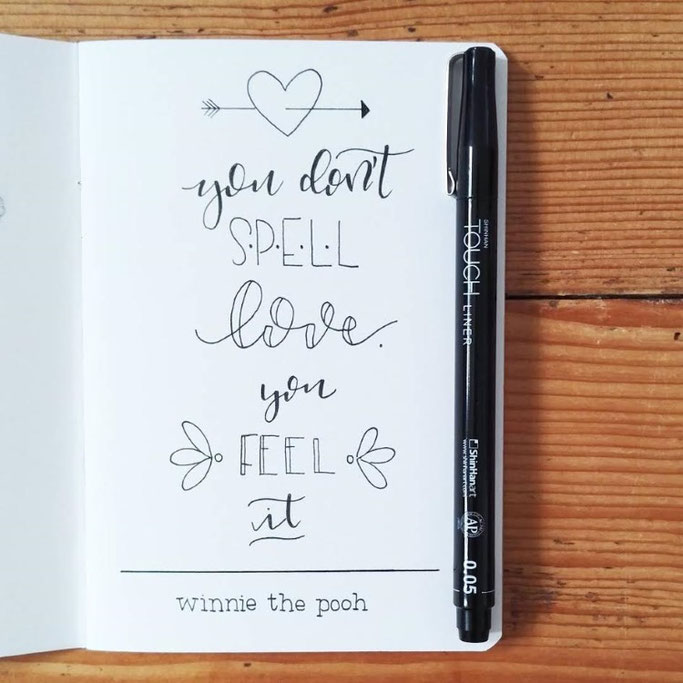 you don't
S·P·E·L·L
love.
you
FEEL
it
winnie the pooh
SHINHAN
TOUCH LINER
ShinHanart
AP
0.05